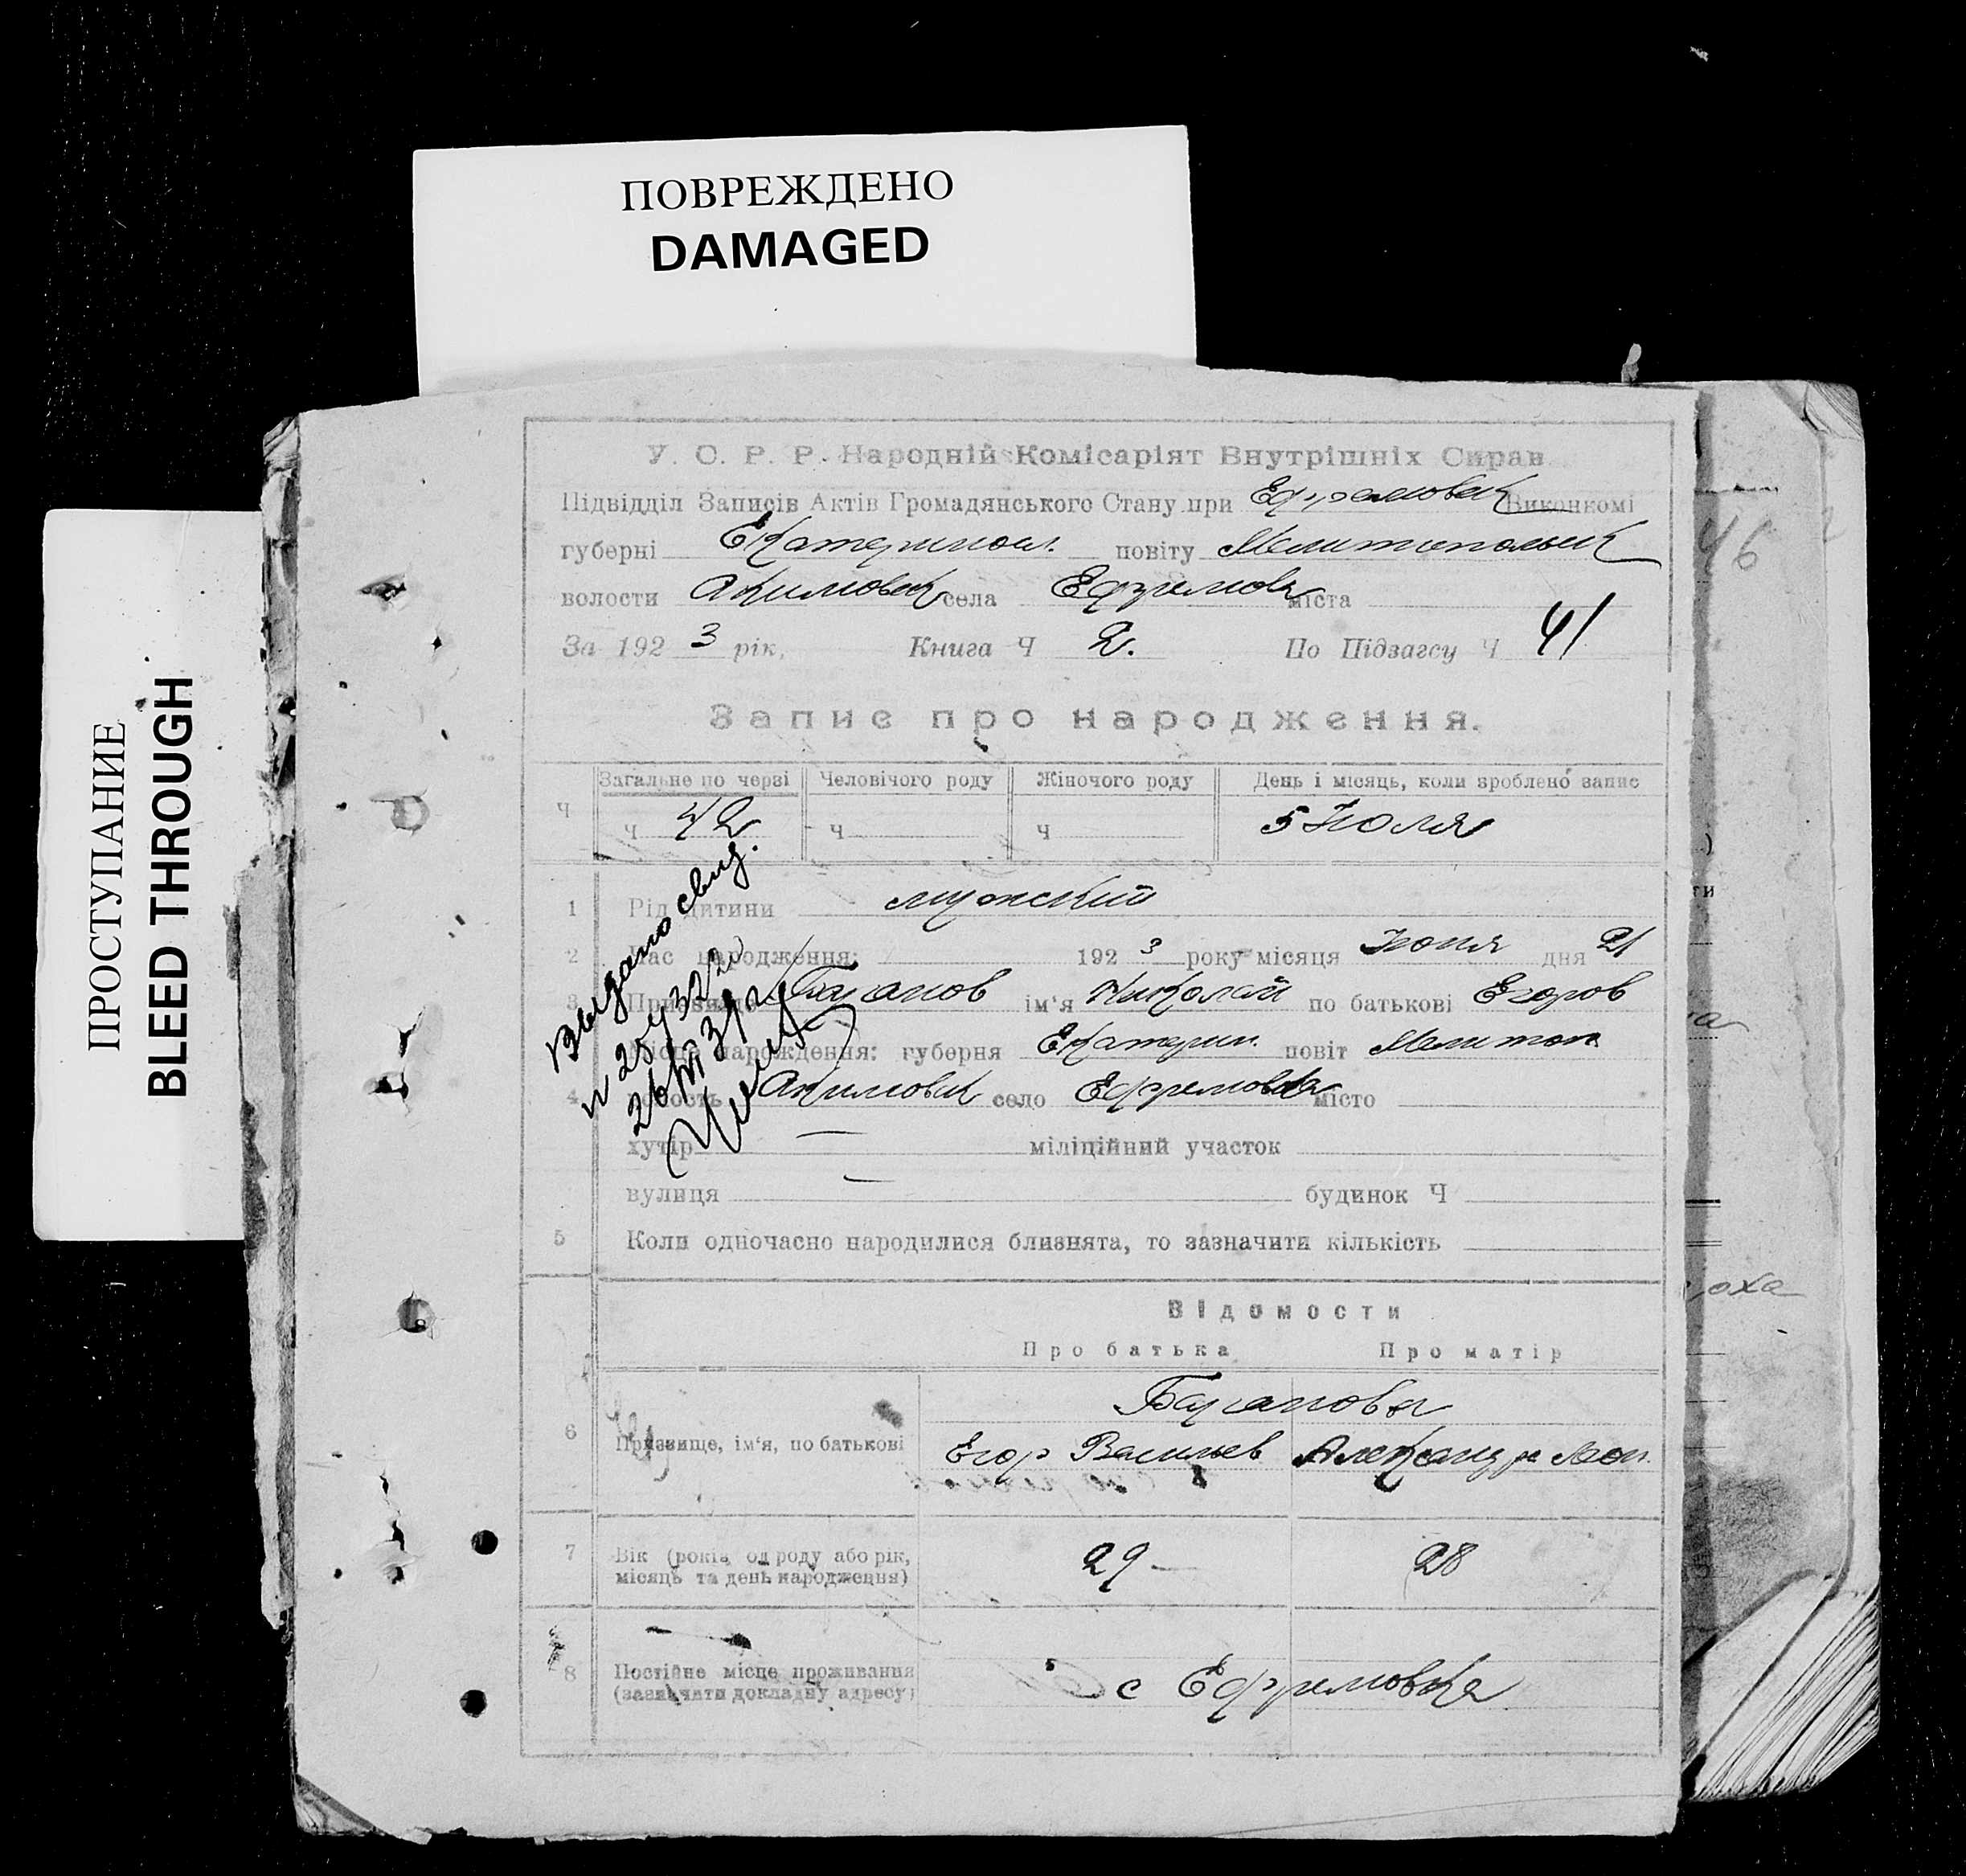 ПОВРЕЖДЕНО
DAMAGED
ПРОСТУПАНИЕ
BLEED THROUGH
У. С. Р. Р. Народній Комісаріят Внутрішніх Справ
Підвідділ Записів Актів Громадянського Стану при Ефремовск Виконкомі
губерні Екатериносл. повіту Мелитопольск
волости Акимовск села Ефремовка міста
За 192 3 рік, Книга Ч 2. По Підзагсу Ч 41
46
Запис про народження.
Загальне по черзі Человічого роду Жіночого роду День і місяць, коли зроблено запис
Ч ч 42 ч ч 5 Июля
1 Рід дитини мужский
2 Час народження: 192 3 року місяця Июня дня 21
3 Призвище Баранов ім‘я Николай по батькові Егоров
Місце народження: губерня Екатерин. повіт Мелитоп
4 волость Акимовск село Ефремовка місто
хутір — міліційний участок
вулиця — будинок Ч
5 Коли одночасно народилися близнята, то зазначити кількість
Выдано свид.
Відомости
Про батька Про матір
Барановы
6 Призвище, ім‘я, по батькові Егор Васильев Александра
7 Вік (років од роду або рік, місяць та день народження) 29 — 28
8 Постійне місце проживання (зазначити докладну адресу) с Ефремовка